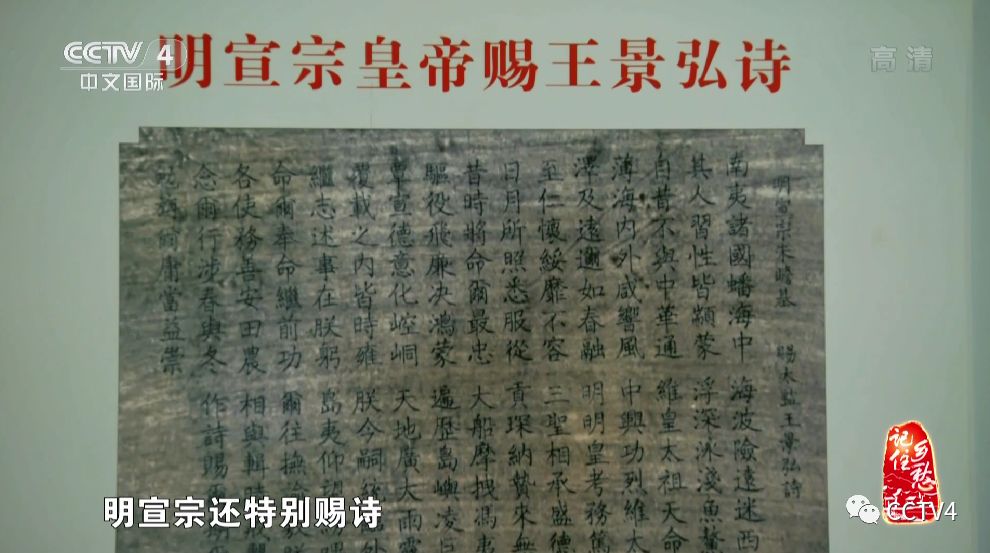 CCTV 4
中文国际
高清
明宣宗皇帝赐王景弘诗
明宣宗朱瞻基 賜太監王景弘詩
南夷諸國蟠海中 海波險遠迷西
其人習性皆顓蒙 浮深泳淺魚鼈
自昔不與中華通 維皇太祖天命
薄海內外咸響風 中興功烈維太
澤及遠邇如春融 明明皇考務篤
至仁懷綏靡不容 三聖相承盛德
日月所照悉服從 貢琛納贄來無
昔時將命爾最忠 大船摩拽馮夷
驅役飛廉決鴻蒙 遍歷島嶼凌巨
覃宣德意化崆峒 天地廣大雨露
覆載之內皆時雍 朕今嗣統
繼志述事在朕躬 島夷仰望
命爾奉命繼前功 爾往撫
各使務善安田農 相與輯
念爾行涉春與冬 作詩賜
爾庸當益崇
明宣宗还特别赐诗
记住乡愁
CCTV4